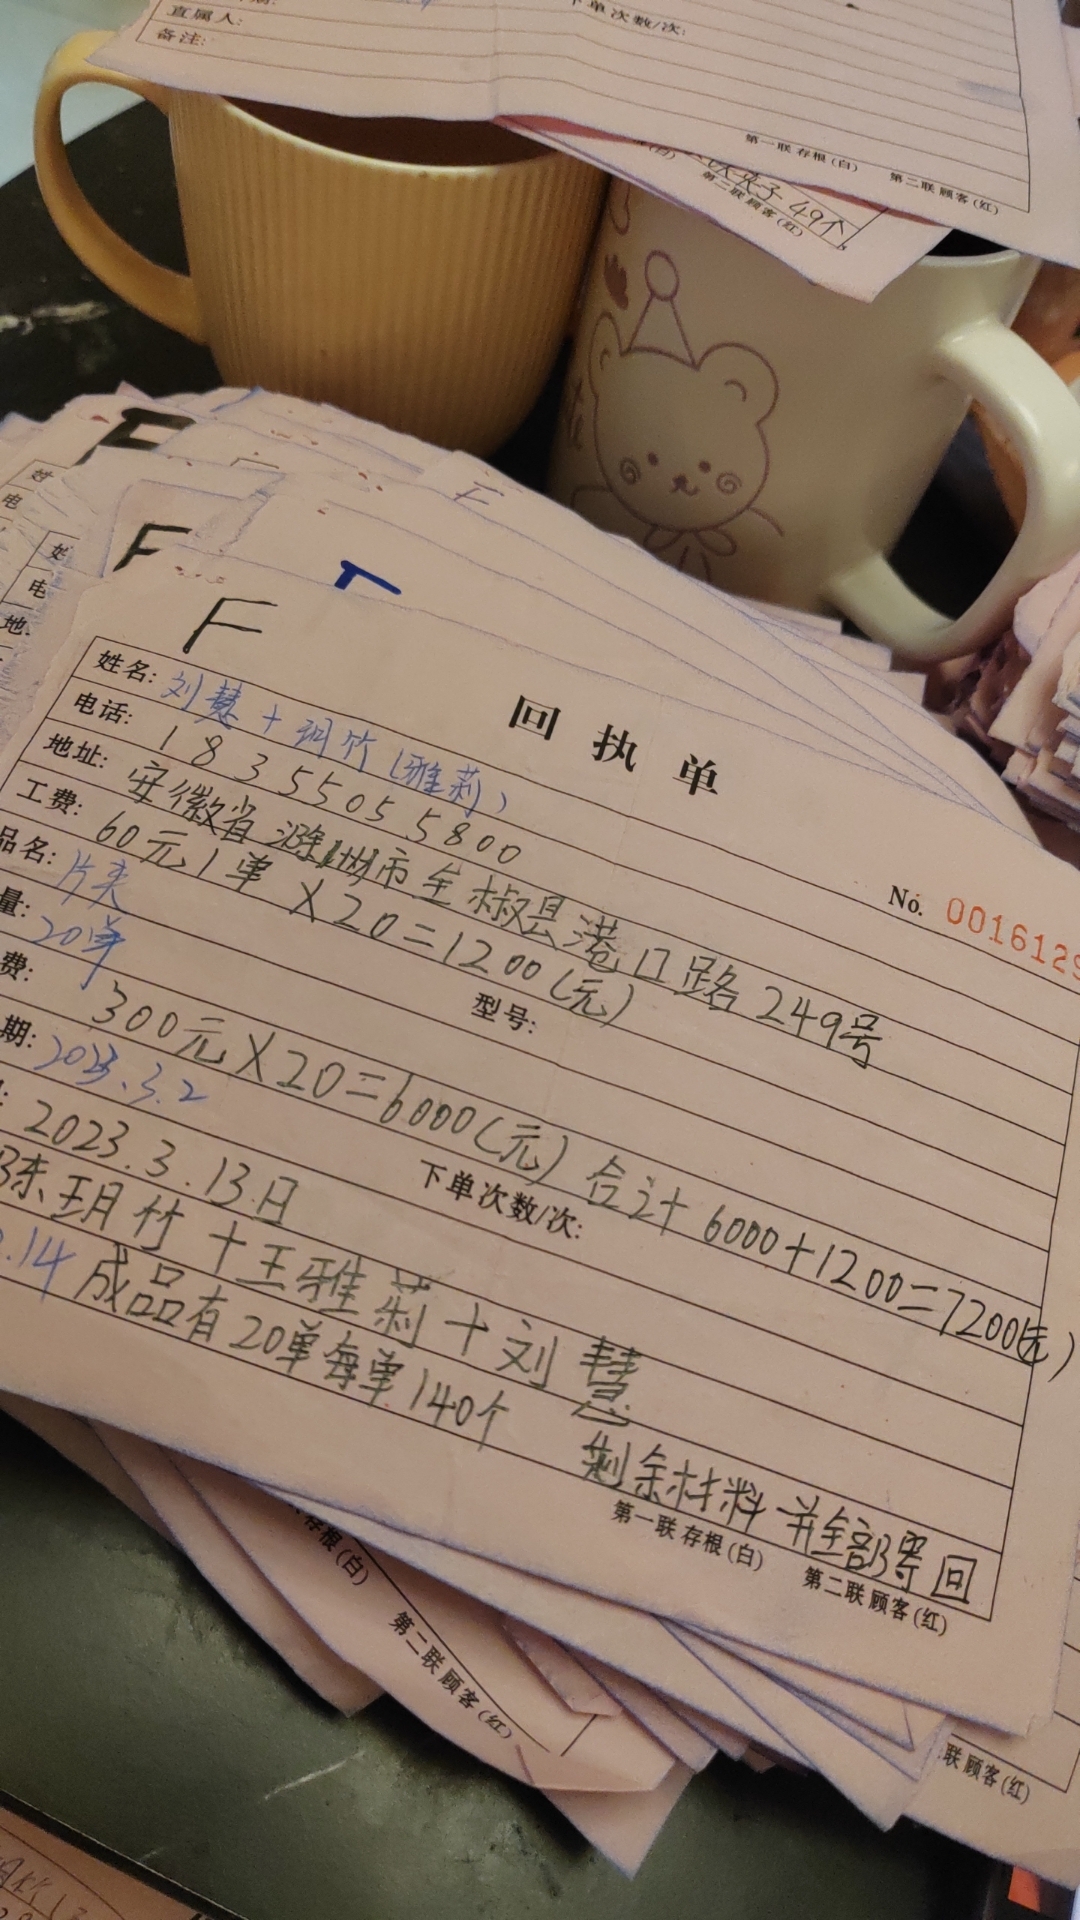 直属人:
下单次数/次:
备注:
第一联存根(白) 第二联顾客(红)
夹子 49个
第二联顾客(红)
F
F
F
回执单
No. 0016129
姓名: 刘慧 + 玥竹 (雅莉)
电话: 18355055800
地址: 安徽省滁州市全椒县港口路249号
工费: 60元1单 X20=1200(元)
品名: 片夹
型号:
量: 20单
费: 300元X20=6000(元) 合计 6000+1200=7200(元)
期: 2023.3.2
下单次数/次:
: 2023.3.13.日
陈玥竹 + 王雅莉 + 刘慧
.14 成品有20单每单140个 剩余材料并全部寄回
第一联存根(白) 第二联顾客(红)
存根(白)
第二联顾客(红)
联顾客(红)